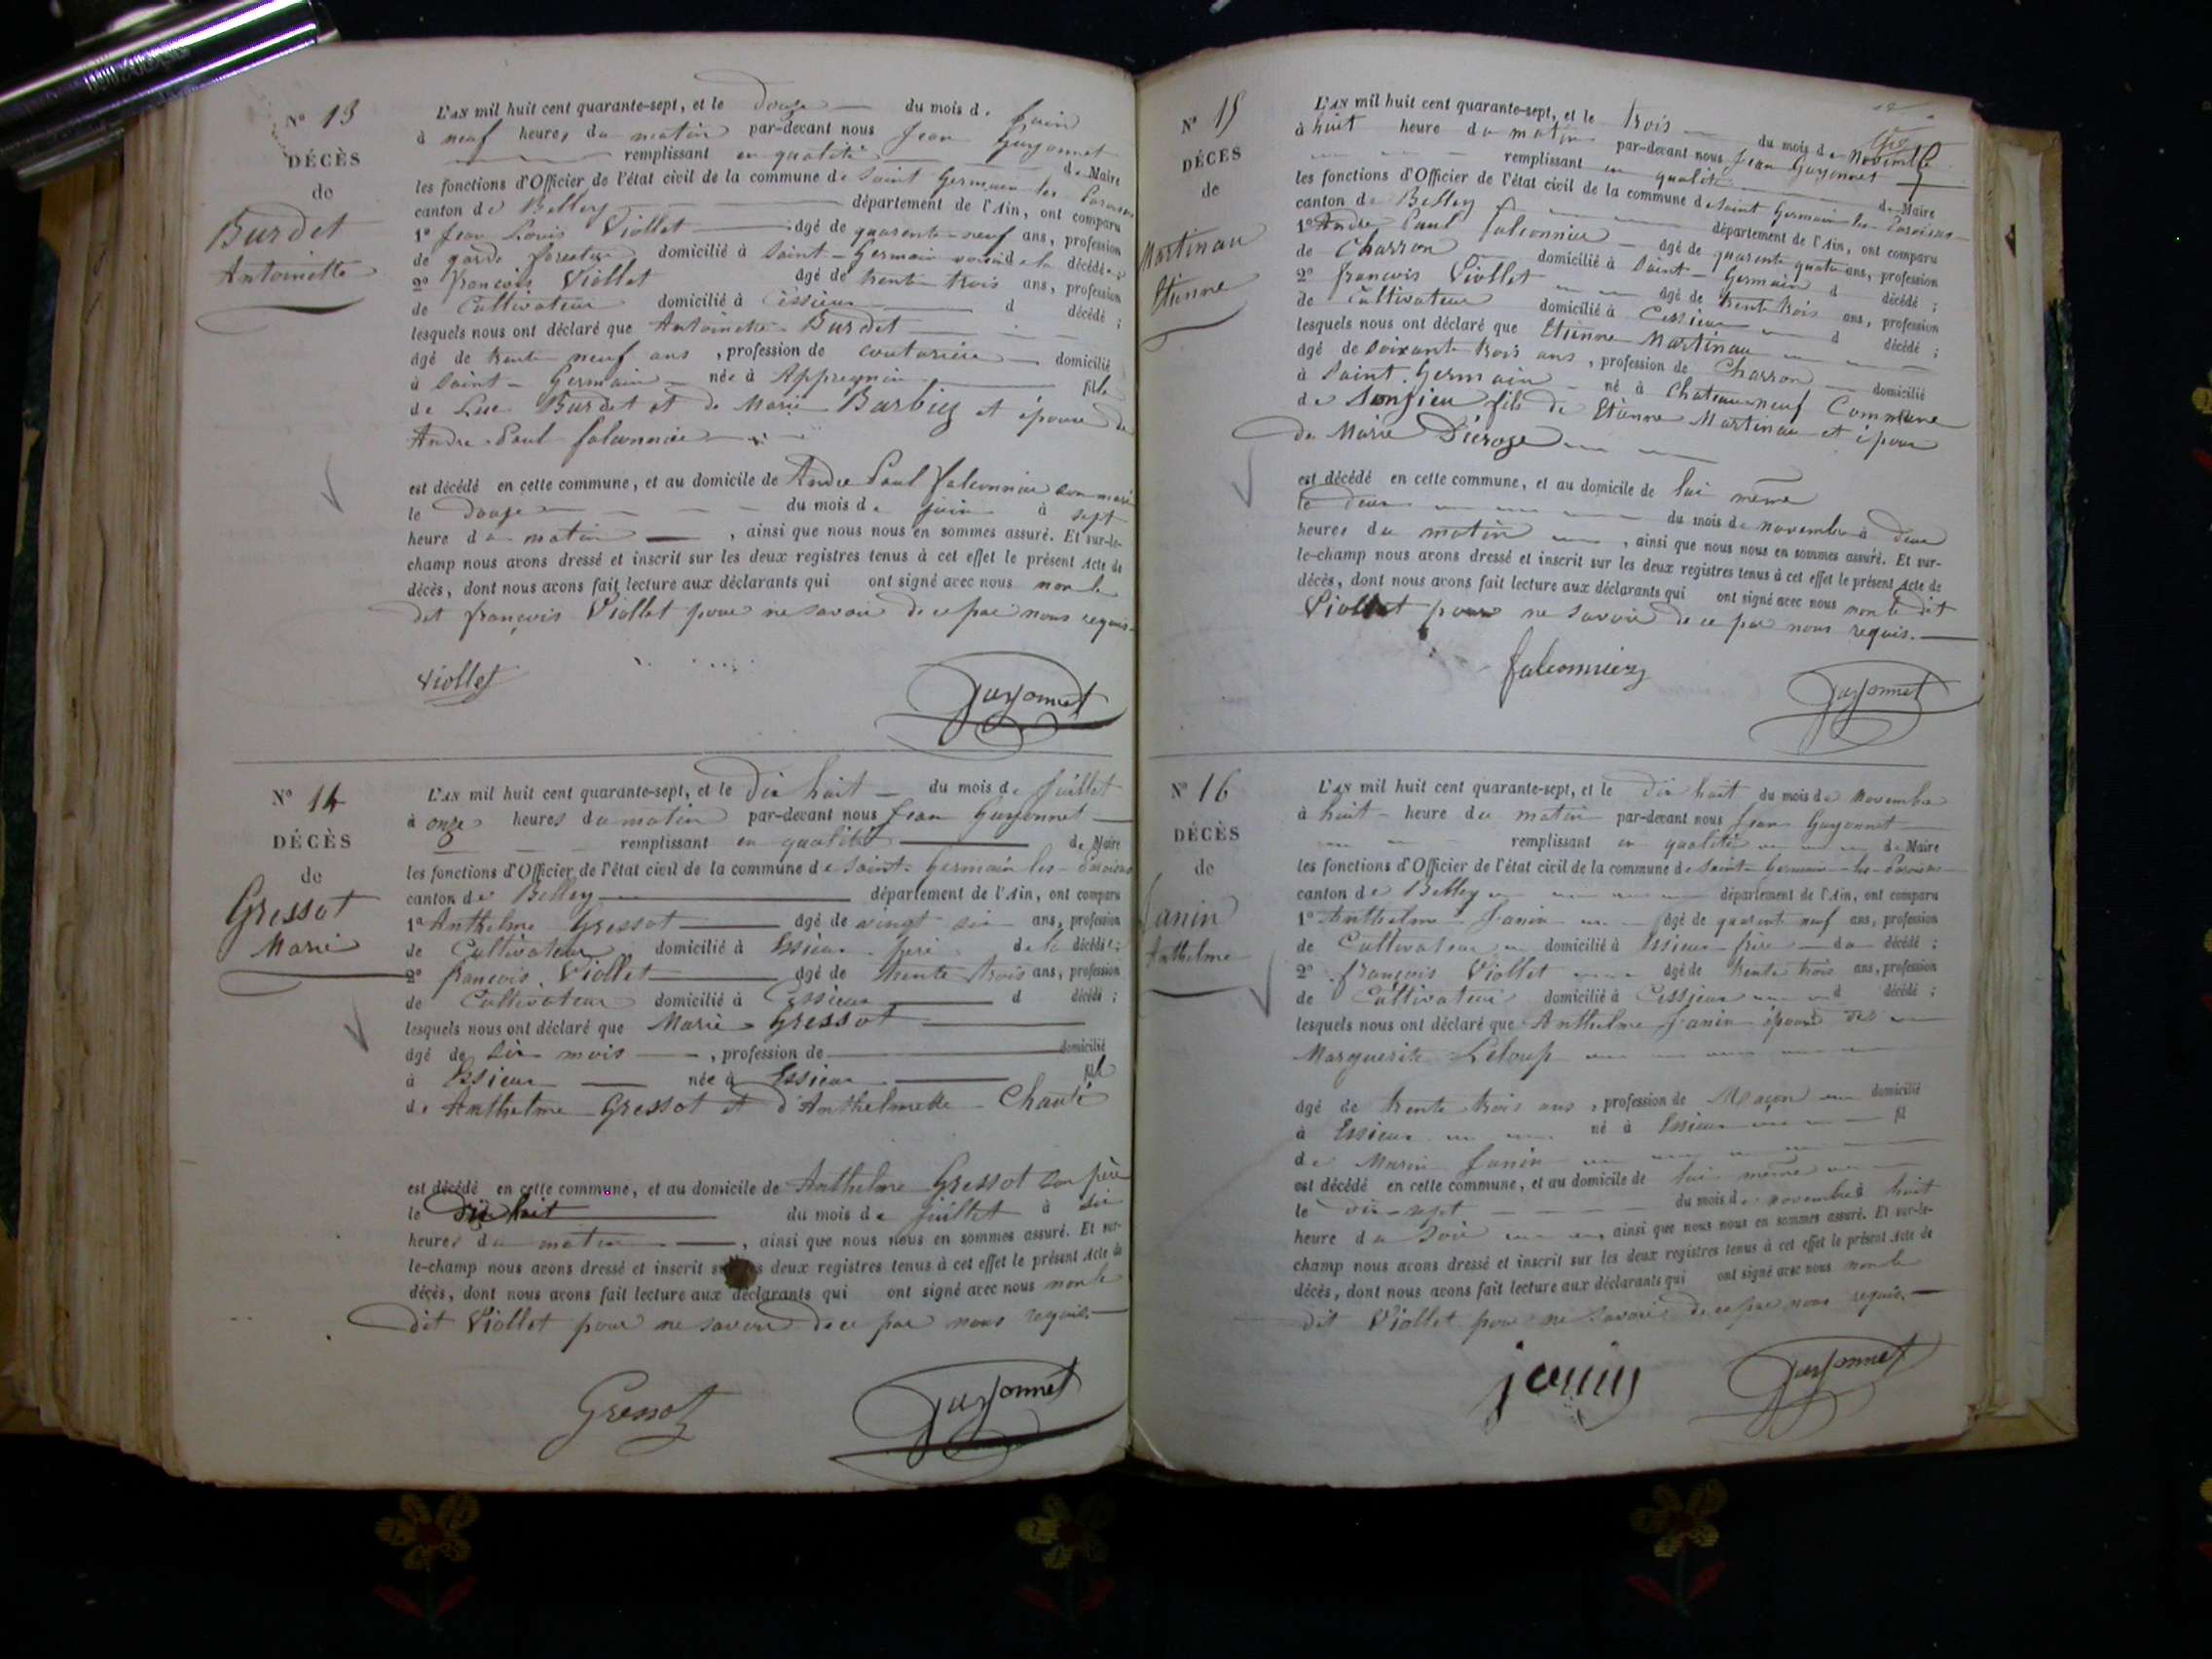 N° 13
DÉCÈS
de
Burdet
Antoinette
L'AN mil huit cent quarante-sept, et le douze du mois de Juin
à neuf heures du matin par-devant nous Jean Guyonnet
remplissant en qualité de Maire
les fonctions d'Officier de l'état civil de la commune de Saint Germain les Paroisses
canton de Belley département de l'Ain, ont comparu
1° Jean Louis Viollet âgé de quarante-neuf ans, profession
de garde forestier domicilié à Saint-Germain voisin de la décédée ;
2° françois Viollet âgé de trente trois ans, profession
de Cultivateur domicilié à Cessieux d décédé ;
lesquels nous ont déclaré que Antoinette Burdet
âgé de trente neuf ans, profession de couturière domicilié
à Saint-Germain née à Appregnin fille
de Luc Burdet et de Marie Barbier et épouse de
André Paul falconnier
est décédé en cette commune, et au domicile de André Paul falconnier son mari
le douze du mois de juin à sept
heure du matin, ainsi que nous nous en sommes assuré. Et sur-le-
champ nous avons dressé et inscrit sur les deux registres tenus à cet effet le présent Acte de
décès, dont nous avons fait lecture aux déclarants qui ont signé avec nous non le
dit françois Viollet pour ne savoir de ce par nous requis
viollet
Guyonnet
N° 14
DÉCÈS
de
Gressot
Marie
L'AN mil huit cent quarante-sept, et le dix huit du mois de Juillet
à onze heures du matin par-devant nous Jean Guyonnet
remplissant en qualité de Maire
les fonctions d'Officier de l'état civil de la commune de Saint-Germain les-Paroisses
canton de Belley département de l'Ain, ont comparu
1° Anthelme Gressot âgé de vingt six ans, profession
de Cultivateur domicilié à Essieux père de la décédée ;
2° françois Viollet âgé de trente trois ans, profession
de Cultivateur domicilié à Cessieux d décédé ;
lesquels nous ont déclaré que Marie Gressot
âgé de six mois, profession de domicilié
à Essieux née à Essieux fil
de Anthelme Gressot et d'Anthelmette
est décédé en cette commune, et au domicile de Anthelme Gressot son père
le dix huit du mois de juillet à six
heures du matin, ainsi que nous nous en sommes assuré. Et sur-
le-champ nous avons dressé et inscrit sur les deux registres tenus à cet effet le présent Acte de
décès, dont nous avons fait lecture aux déclarants qui ont signé avec nous non le
dit Viollet pour ne savoir de ce par nous requis
Gressot
Guyonnet
N° 15
DÉCÈS
de
Martinau
Etienne
L'AN mil huit cent quarante-sept, et le trois du mois de Novembre
à huit heure du matin par-devant nous Jean Guyonnet
remplissant en qualité de Maire
les fonctions d'Officier de l'état civil de la commune de Saint Germain-les-Paroisses
canton de Belley département de l'Ain, ont comparu
1° André Paul falconnier âgé de quarante quatre ans, profession
de Charron domicilié à Saint-Germain d décédé ;
2° françois Viollet âgé de trente trois ans, profession
de Cultivateur domicilié à Cessieux d décédé ;
lesquels nous ont déclaré que Etienne Martinau
âgé de soixante trois ans, profession de Charron domicilié
à Saint-Germain né à Chateauneuf Commune
de Songieu fils de Etienne Martinau et époux
de Marie
est décédé en cette commune, et au domicile de lui même
le deux du mois de novembre à deux
heures du matin, ainsi que nous nous en sommes assuré. Et sur-
le-champ nous avons dressé et inscrit sur les deux registres tenus à cet effet le présent Acte de
décès, dont nous avons fait lecture aux déclarants qui ont signé avec nous non le dit
Viollet pour ne savoir de ce par nous requis.
falconnier
Guyonnet
N° 16
DÉCÈS
de
Janin
Anthelme
L'AN mil huit cent quarante-sept, et le dix huit du mois de Novembre
à huit heure du matin par-devant nous Jean Guyonnet
remplissant en qualité de Maire
les fonctions d'Officier de l'état civil de la commune de Saint-Germain-les-Paroisses
canton de Belley département de l'Ain, ont comparu
1° Anthelme Janin âgé de quarante neuf ans, profession
de Cultivateur domicilié à Essieux frère du décédé ;
2° françois Viollet âgé de trente trois ans, profession
de Cultivateur domicilié à Cessieux d décédé ;
lesquels nous ont déclaré que Anthelme Janin époux de
Marguerite Leloup
âgé de trente trois ans, profession de Maçon domicilié
à Essieux né à Essieux fil
de Marin Janin
est décédé en cette commune, et au domicile de lui même
le dix-sept du mois de novembre à huit
heure du soir, ainsi que nous nous en sommes assuré. Et sur-le-
champ nous avons dressé et inscrit sur les deux registres tenus à cet effet le présent Acte de
décès, dont nous avons fait lecture aux déclarants qui ont signé avec nous non le
dit Viollet pour ne savoir de ce par nous requis.
janin
Guyonnet